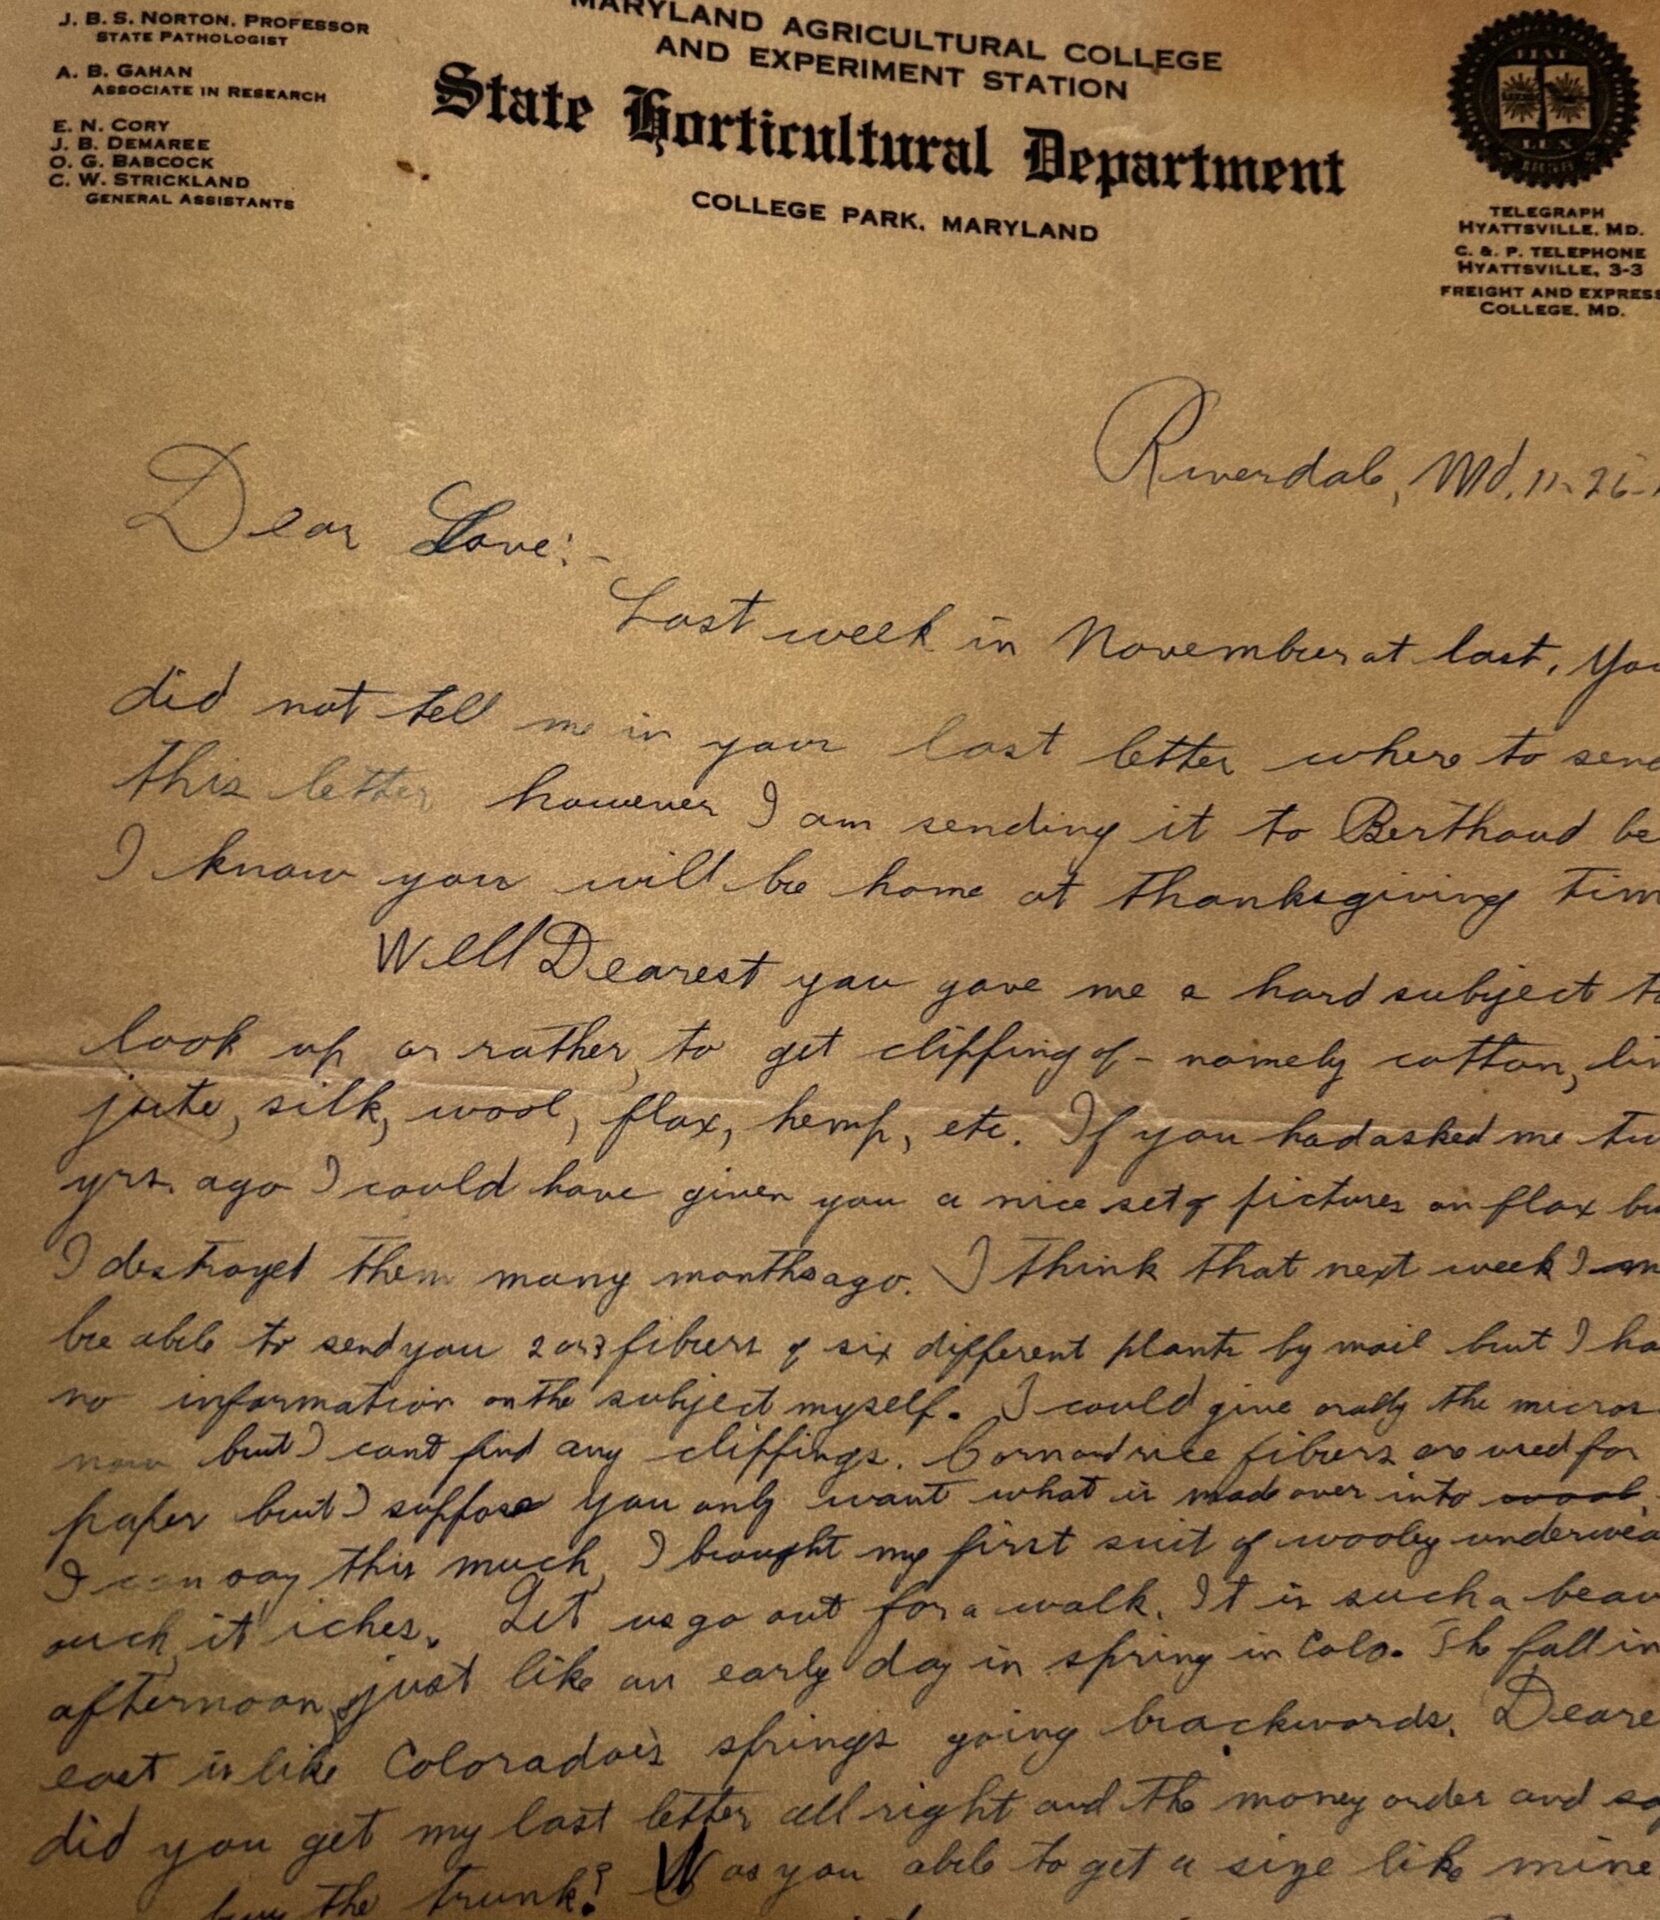 J. B. S. NORTON, PROFESSOR
STATE PATHOLOGIST
A. B. GAHAN
ASSOCIATE IN RESEARCH
E. N. CORY
J. B. DEMAREE
O. G. BABCOCK
C. W. STRICKLAND
GENERAL ASSISTANTS
MARYLAND AGRICULTURAL COLLEGE
AND EXPERIMENT STATION
State Horticultural Department
COLLEGE PARK, MARYLAND
TELEGRAPH
HYATTSVILLE, MD.
C. & P. TELEPHONE
HYATTSVILLE, 3-3
FREIGHT AND EXPRESS
COLLEGE, MD.
Riverdale, Md. 11-26-
Dear Love:-
Last week in November at last. You
did not tell me in your last letter where to send
this letter however I am sending it to Berthoud be
I know you will be home at Thanksgiving tim
Well Dearest you gave me a hard subject to
look up or rather to get clipping of - namely cotton, lin
jute, silk, wool, flax, hemp, etc. If you had asked me tw
yrs. ago I could have given you a nice set of pictures on flax bu
I destroyet them many months ago. I think that next week I
be able to send you 2 or 3 fibers of six different plants by mail but I ha
no information on the subject myself. I could give orally the micros
now but I cant find any clippings. Corn and rice fibers are used for
paper but I suppose you only want what is made over into wool.
I can say this much, I brought my first suit of wooley underwea
ouch, it iches. Let us go out for a walk. It is such a beau
afternoon, just like an early day in spring in Colo. The fall in
east is like Colorado's springs going backwards. Deare
did you get my last letter all right and the money order and
buy the trunk? Was you able to get a size like mine